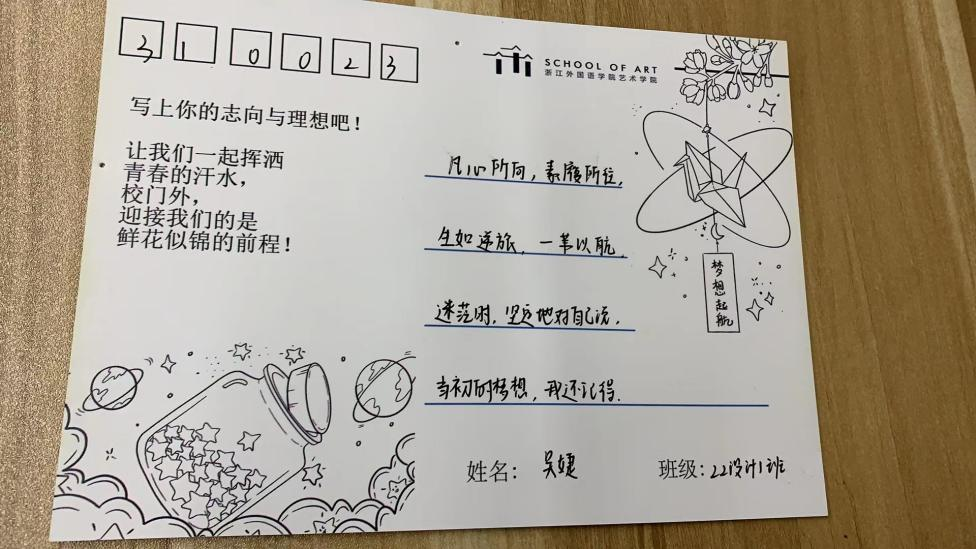 310023
SCHOOL OF ART
浙江外国语学院艺术学院
写上你的志向与理想吧！
让我们一起挥洒
青春的汗水，
校门外，
迎接我们的是
鲜花似锦的前程！
凡心所向，素履所往，
生如逆旅，一苇以航，
迷茫时，坚定地对自己说，
当初的梦想，我还记得.
梦想起航
姓名：吴婕
班级：22设计1班